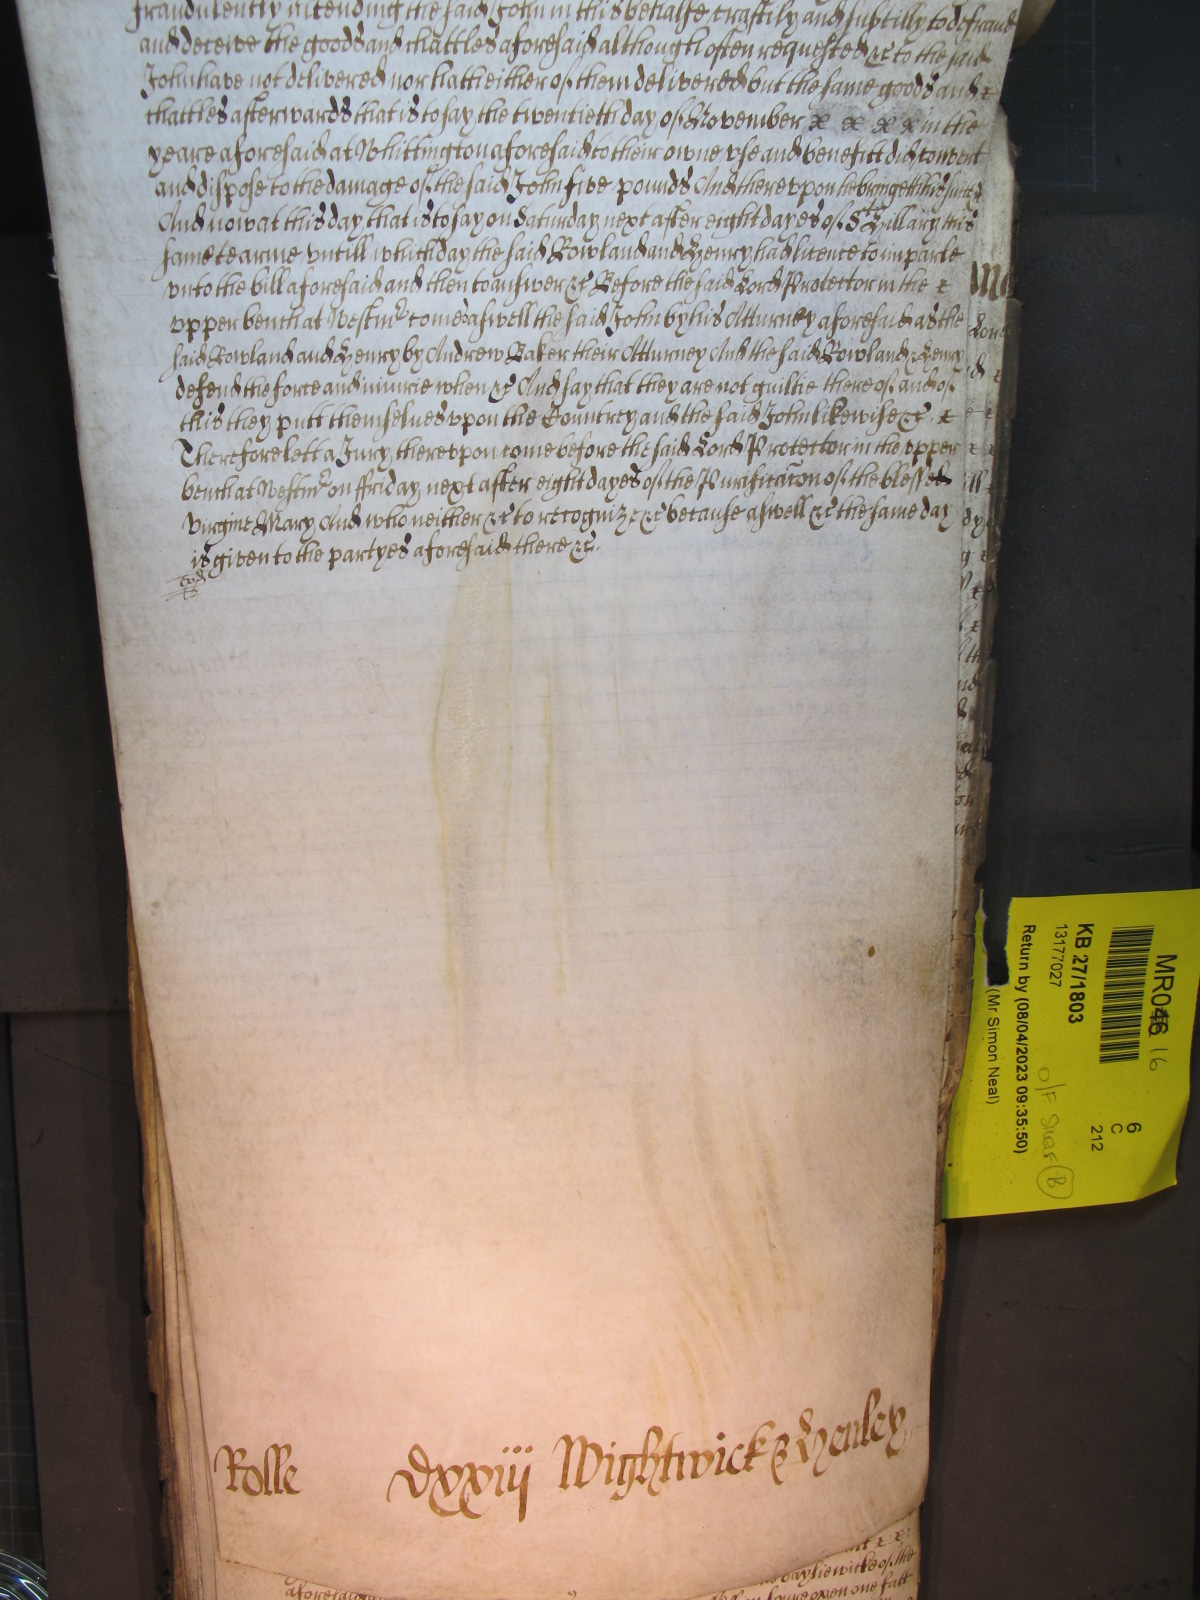 fraudulently intending the said John in this behalfe craftily and subtilly to defraud
and deceive the goods and chattles aforesaid although often requested &c to the said
John have not delivered nor hath either of them delivered but the same goods and x
chattles afterwards that is to say the twentieth day of November x x x x in the
yeare aforesaid at Whittington aforesaid to their owne vse and benefitt did convert
and dispose to the damage of the said John five pounds And therevpon he bringeth his suite &
And now at this day that is to say on Saturday next after eight dayes of St Hillary this
same tearme vntill which day the said Rowland and Henry had licence to imparle
vnto the bill aforesaid and then to answer &c Before the said Lord Protector in the x
vpper bench at Westmr come aswell the said John by his Atturney aforesaid as the
said Rowland and Henry by Andrew Baker their Atturney And the said Rowland & Henry
defend the force and iniurie when &c And say that they are not guiltie thereof and of
this they putt themselues vpon the Countrey and the said John likewise &c. x
Therefore lett a Jury therevpon come before the said Lord Protector in the vpper
bench at Westmr on ffriday next after eight dayes of the Purificacon of the blessed
virgine Mary And who neither &c to recognize &c because aswell &c the same day
is given to the partyes aforesaid there &c.
Rolle dxxiij Wightwick & Henley
bayliewicke of the
MR046 16
KB 27/1803
13177027
Return by (08/04/2023 09:35:50)
(Mr Simon Neal)
6
C
212
O/F
B